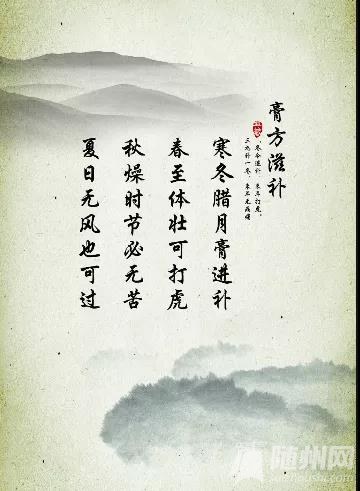 膏方滋补
冬令进补,来年打虎,
三九补一冬,来年无病痛
寒冬腊月膏进补
春至体壮可打虎
秋燥时节必无苦
夏日无风也可过
随州网